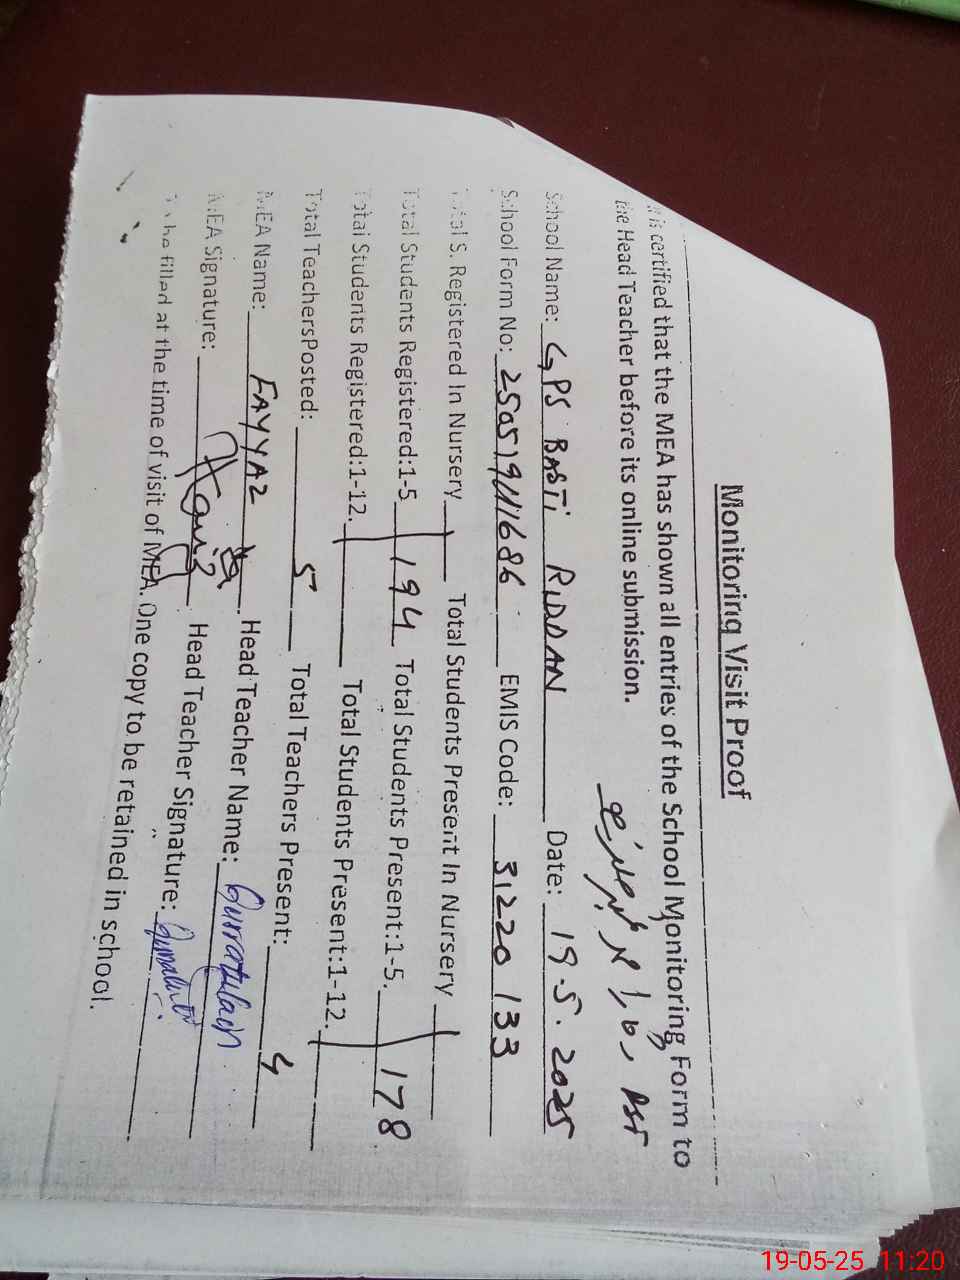 Monitoring Visit Proof
It is certified that the MEA has shown all entries of the School Monitoring Form to
the Head Teacher before its online submission.
School Name: GPS BASTI RIDDAN Date: 19.5.2025
School Form No: 2505191111686 EMIS Code: 31220133
Total S. Registered In Nursery Total Students Present In Nursery
Total Students Registered:1-5 194 Total Students Present:1-5. 178
Total Students Registered:1-12. Total Students Present:1-12.
Total TeachersPosted: 5 Total Teachers Present: 4
MEA Name: FAYYAZ Head Teacher Name: Qurratulain
MEA Signature: Head Teacher Signature:
To be filled at the time of visit of MEA. One copy to be retained in school.
19-05-25 11:20